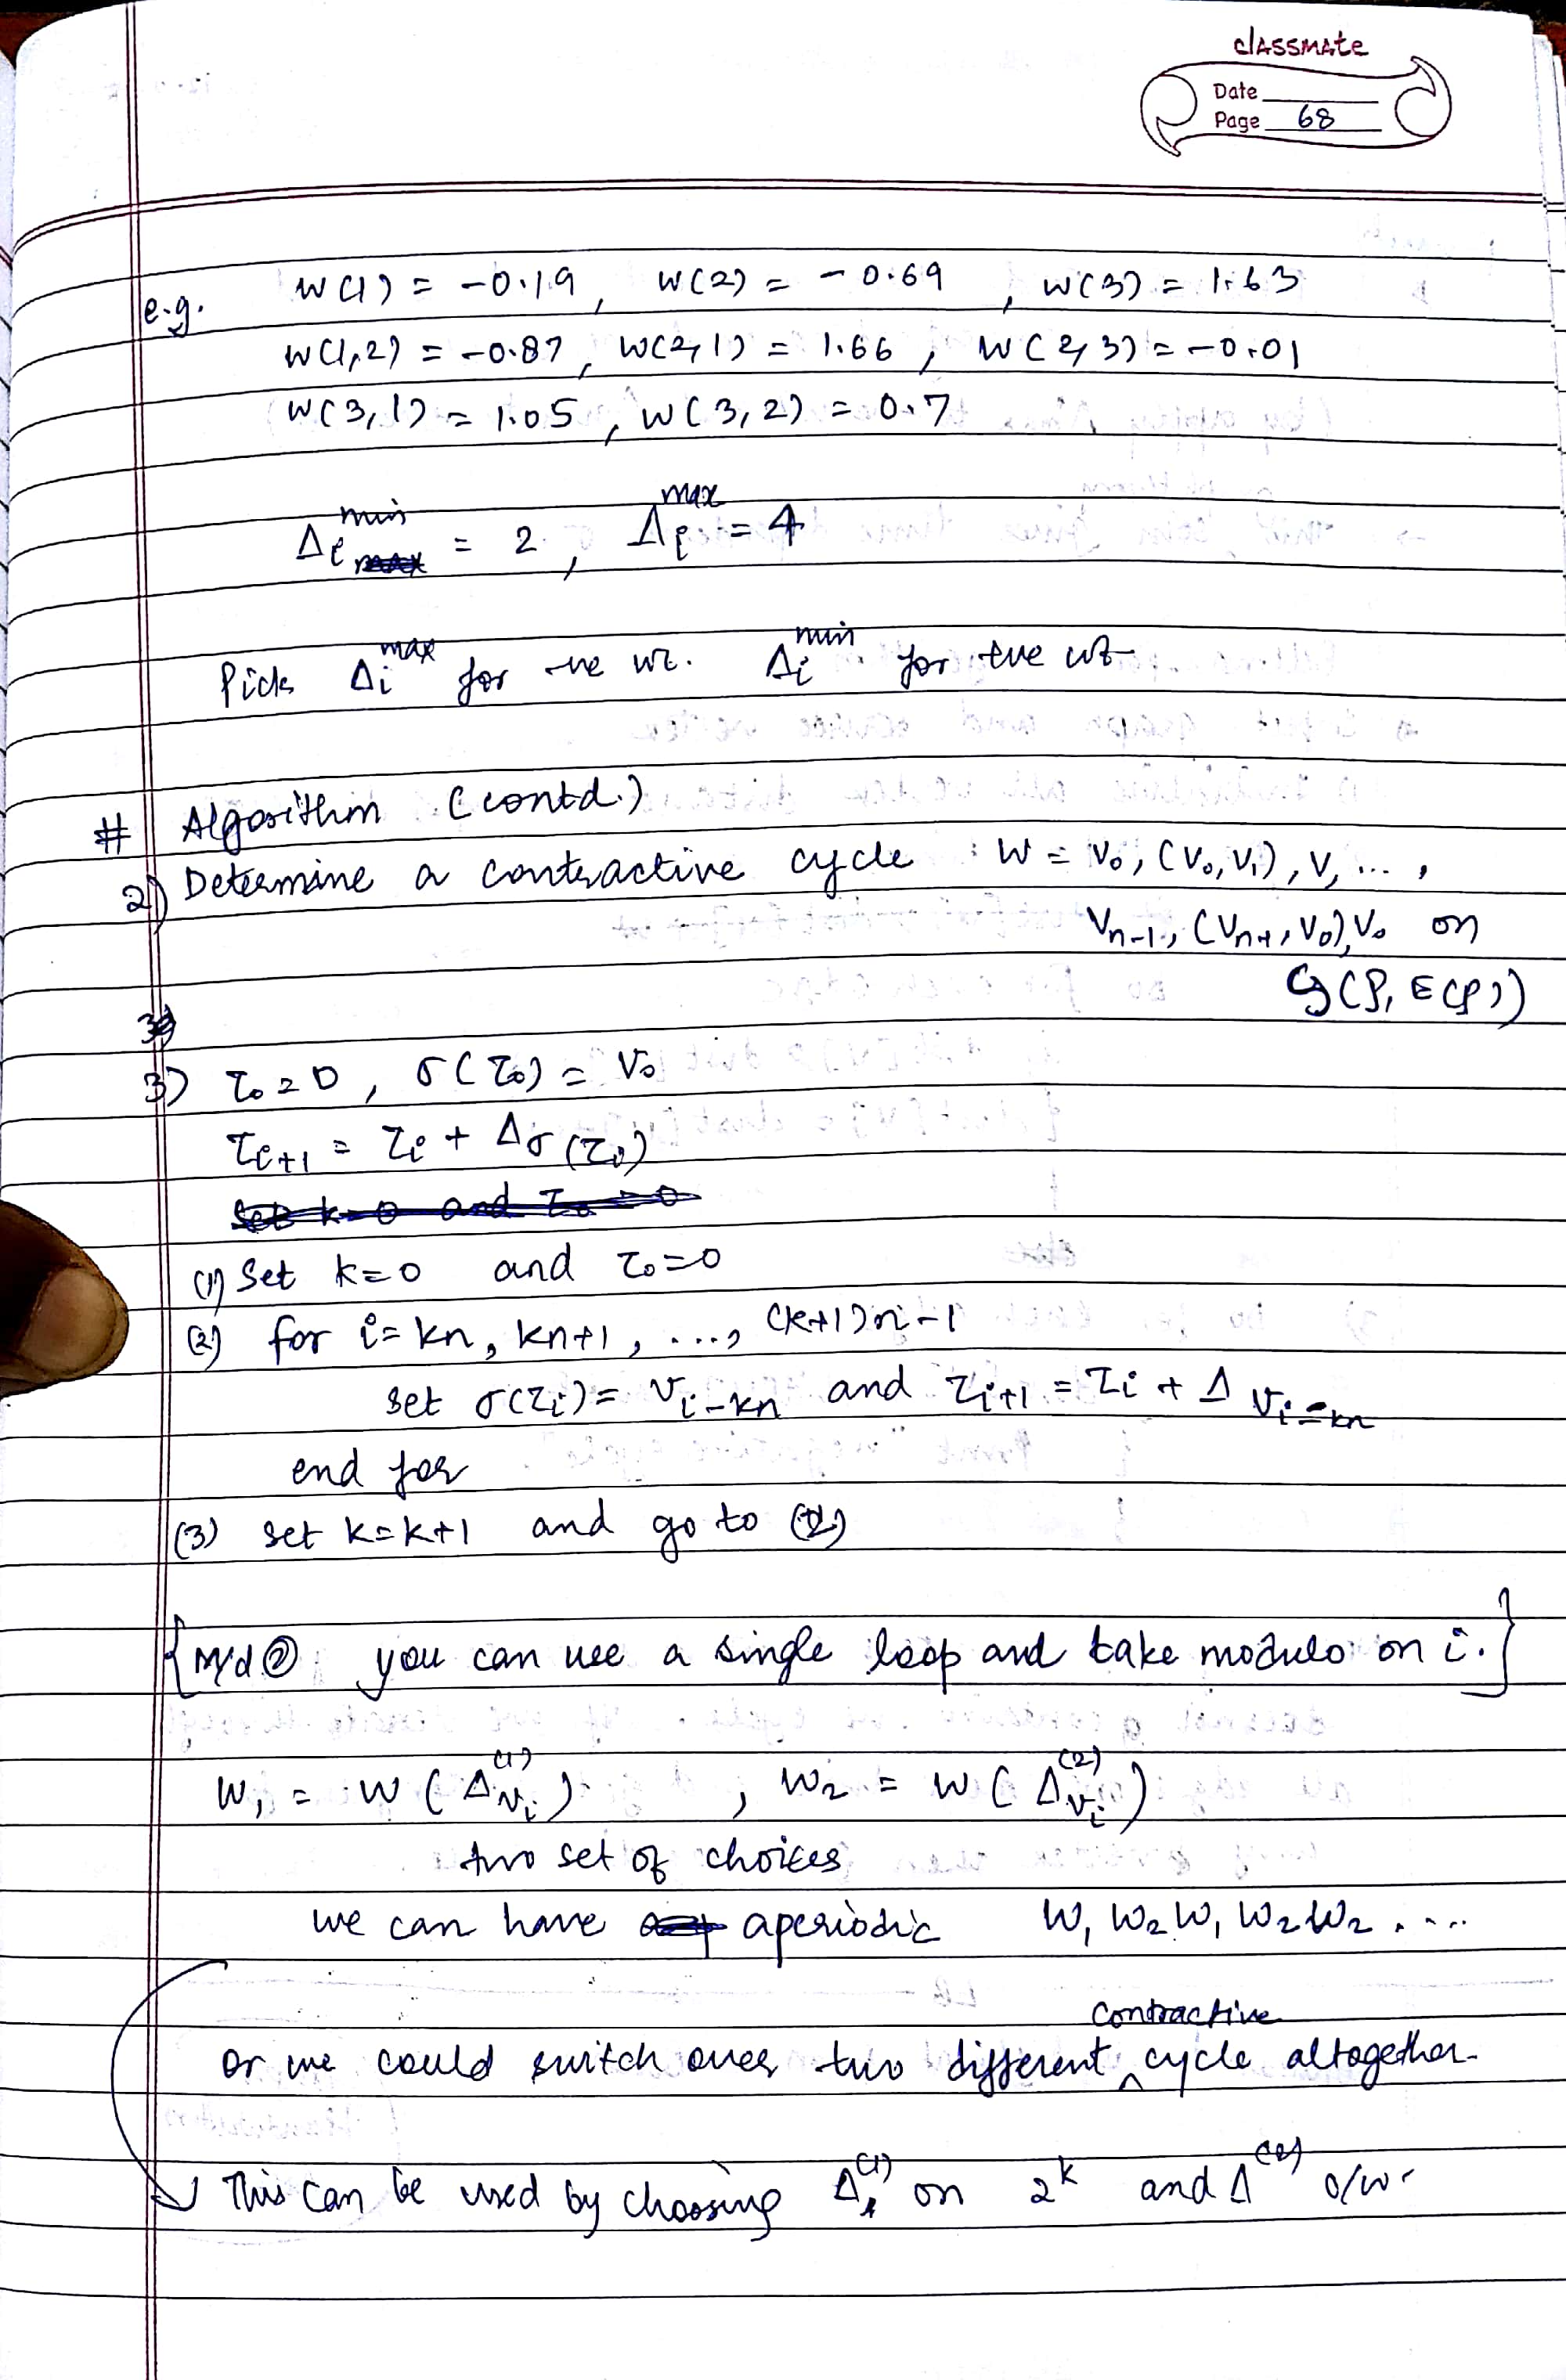 classmate
Date
Page 68
e.g. w(1) = -0.19, w(2) = -0.69, w(3) = 1.63
w(1,2) = -0.87, w(2,1) = 1.66, w(2,3) = -0.01
w(3,1) = 1.05, w(3,2) = 0.7
Δi^min = 2, Δi^max = 4
Pick Δi^max for -ve wt. Δi^min for +ve wt
# Algorithm (contd.)
2) Determine a contractive cycle : W = v₀, (v₀, v₁), v, ... ,
Vn-1, (Vn-1, V₀), V₀ on
G(P, E(P))
3) τ₀ = 0, σ(τ₀) = V₀
τi+1 = τi + Δσ(τi)
(1) Set k=0 and τ₀=0
(2) for i= kn, kn+1, ...., (k+1)n-1
set σ(τi) = vi-kn and τi+1 = τi + Δvi-kn
end for
(3) set k=k+1 and go to (2)
you can use a single loop and take modulo on i.}
W₁ = W(Δvi^(1)), W₂ = W(Δvi^(2))
two set of choices
we can have aperiodic W₁ W₂ W₁ W₂ W₂ ....
or we could switch over two different contractive cycle altogether.
This can be used by choosing Δ^(1) on 2^k and Δ^(2) o/w.